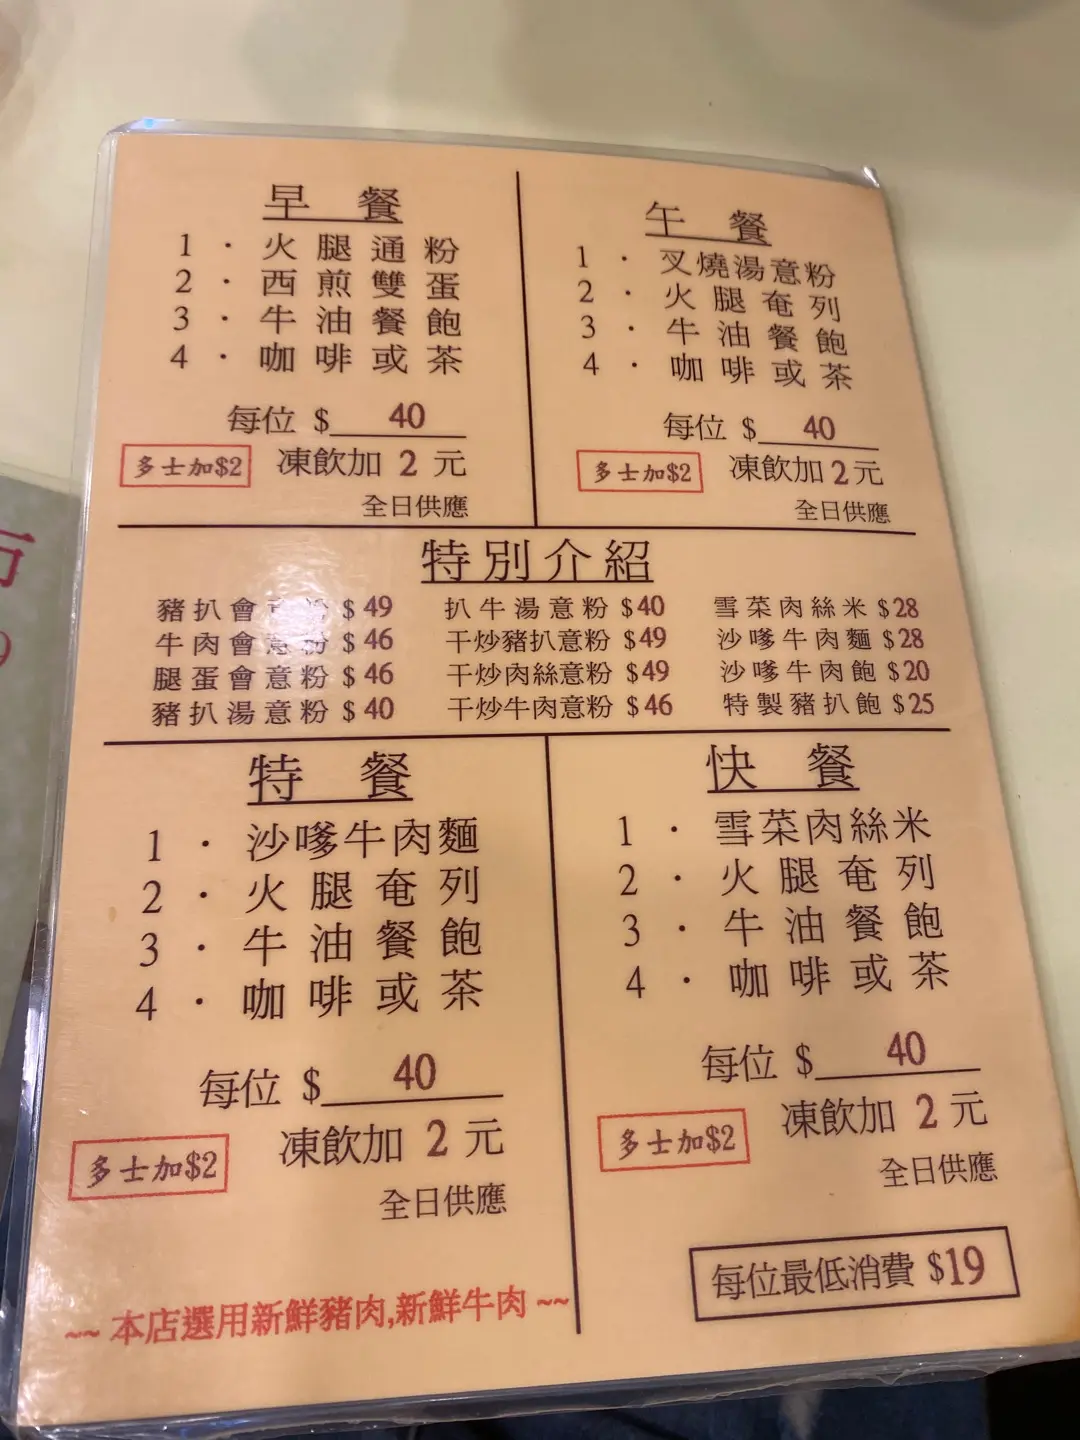 早 餐
1 · 火腿通粉
2 · 西煎雙蛋
3 · 牛油餐飽
4 · 咖啡或茶
每位 $ 40
多士加$2 凍飲加 2 元
全日供應
午 餐
1 · 叉燒湯意粉
2 · 火腿奄列
3 · 牛油餐飽
4 · 咖啡或茶
每位 $ 40
多士加$2 凍飲加 2 元
全日供應
特別介紹
豬扒會意粉 $ 49 扒牛湯意粉 $ 40 雪菜肉絲米 $ 28
牛肉會意粉 $ 46 干炒豬扒意粉 $ 49 沙嗲牛肉麵 $ 28
腿蛋會意粉 $ 46 干炒肉絲意粉 $ 49 沙嗲牛肉飽 $ 20
豬扒湯意粉 $ 40 干炒牛肉意粉 $ 46 特製豬扒飽 $ 25
特 餐
1 · 沙嗲牛肉麵
2 · 火腿奄列
3 · 牛油餐飽
4 · 咖啡或茶
每位 $ 40
凍飲加 2 元
多士加$2
全日供應
快 餐
1 · 雪菜肉絲米
2 · 火腿奄列
3 · 牛油餐飽
4 · 咖啡或茶
每位 $ 40
凍飲加 2 元
多士加$2
全日供應
每位最低消費 $19
~~ 本店選用新鮮豬肉,新鮮牛肉 ~~